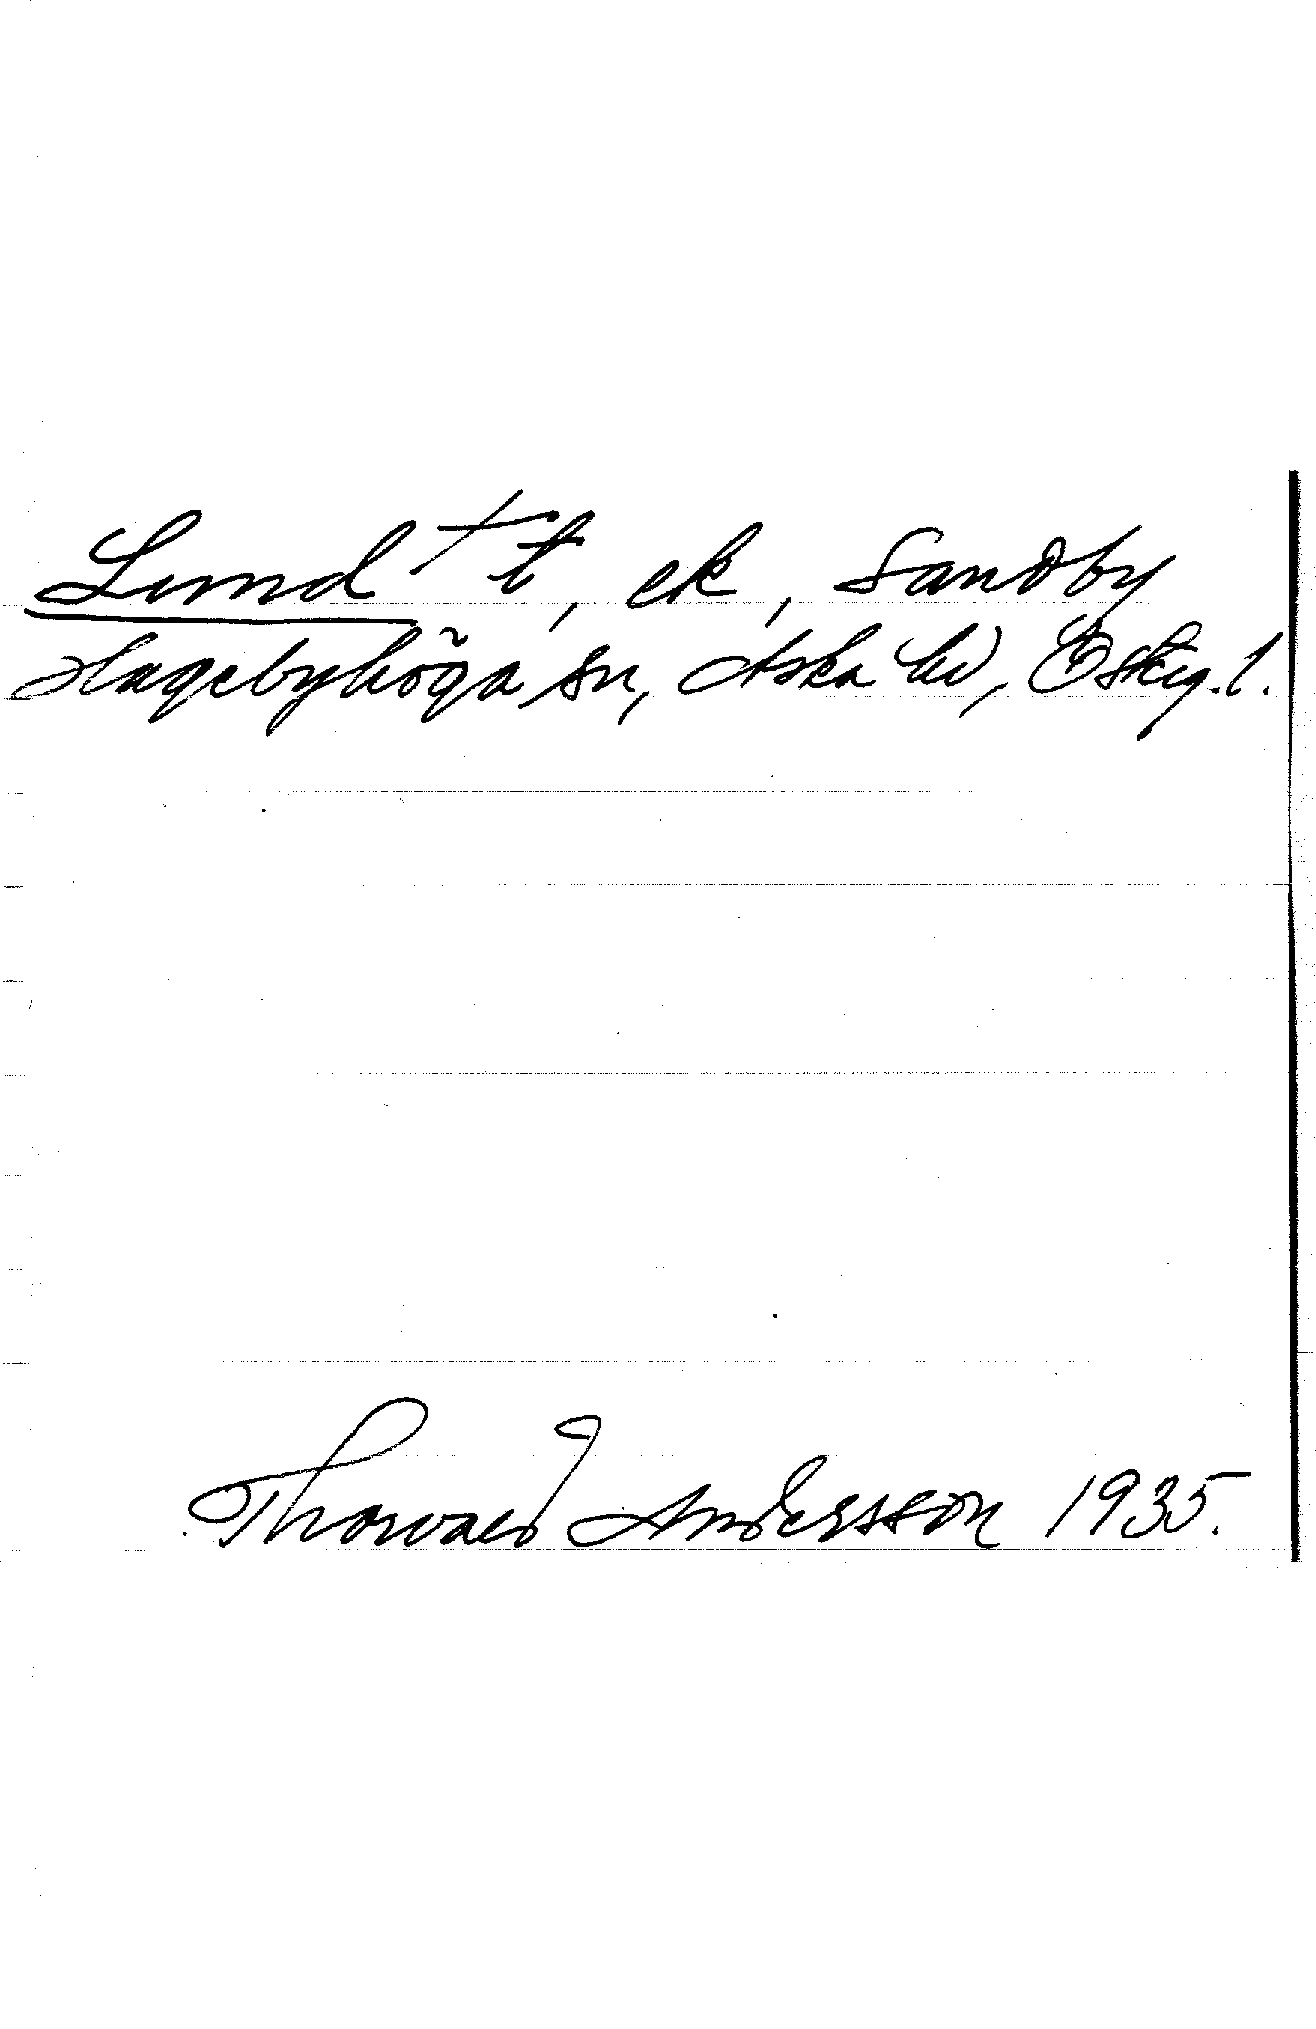 Lund + t, ek, Sandby
Hagebyhöga sn, Aska hd, Östg. l.
Thorvald Andersson 1935.